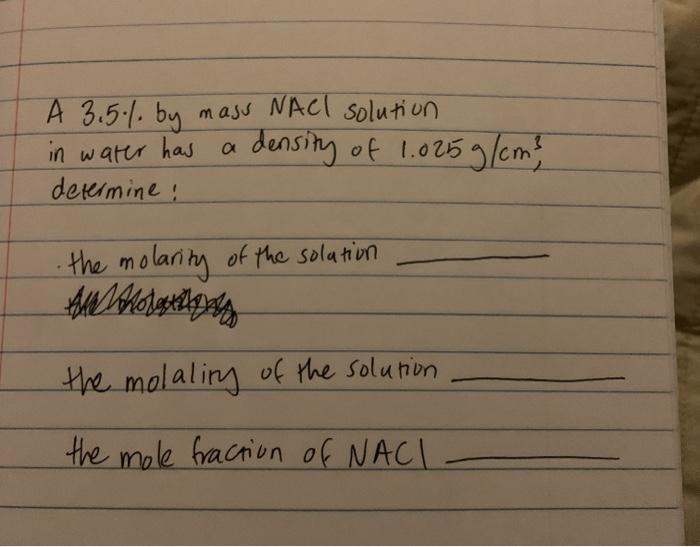 A 3.5% by mass NACl solution
in water has a density of 1.025 g/cm³,
determine:
· the molarity of the solution ________
the molality of the solution ________
the mole fraction of NACl ________